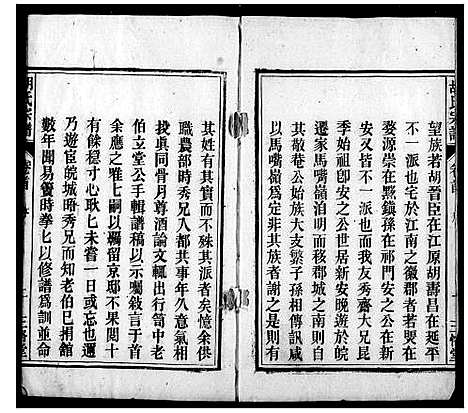 望族若胡晉臣在江原胡壽昌在延平
不一派也宅於江南之徽郡者若閿在
婺源崇在黟鎮孫在祁門安之公在晥
安又皆不一派也而我友秀齋大兄昆
季始祖卽安之公世居新安晚遊於皖
遷家馬嘴嶺洎明而移郡城之南則自
其敬菴公始族大支繁子孫相傳訊咸
以馬嘴嶺為定非其族者謝之是則有
其姓有同而不殊其派者矣憶余供
職農部時秀兄八都共事年久意氣相
投眞同骨月尊酒論文輒出行笥中老
伯立堂公手輯譜稿以示囑敘言于首
余應之唯七嗣以羈留京邸不果閒十
有餘稔寸心耿匕未嘗一日或忘也邇
乃遊宦皖城晤秀兄而知老伯已捐舘
數年聞易簀時拳匕以修譜為訓並命
胡氏宗譜
卷首
三㤗堂
胡氏宗譜
卷首